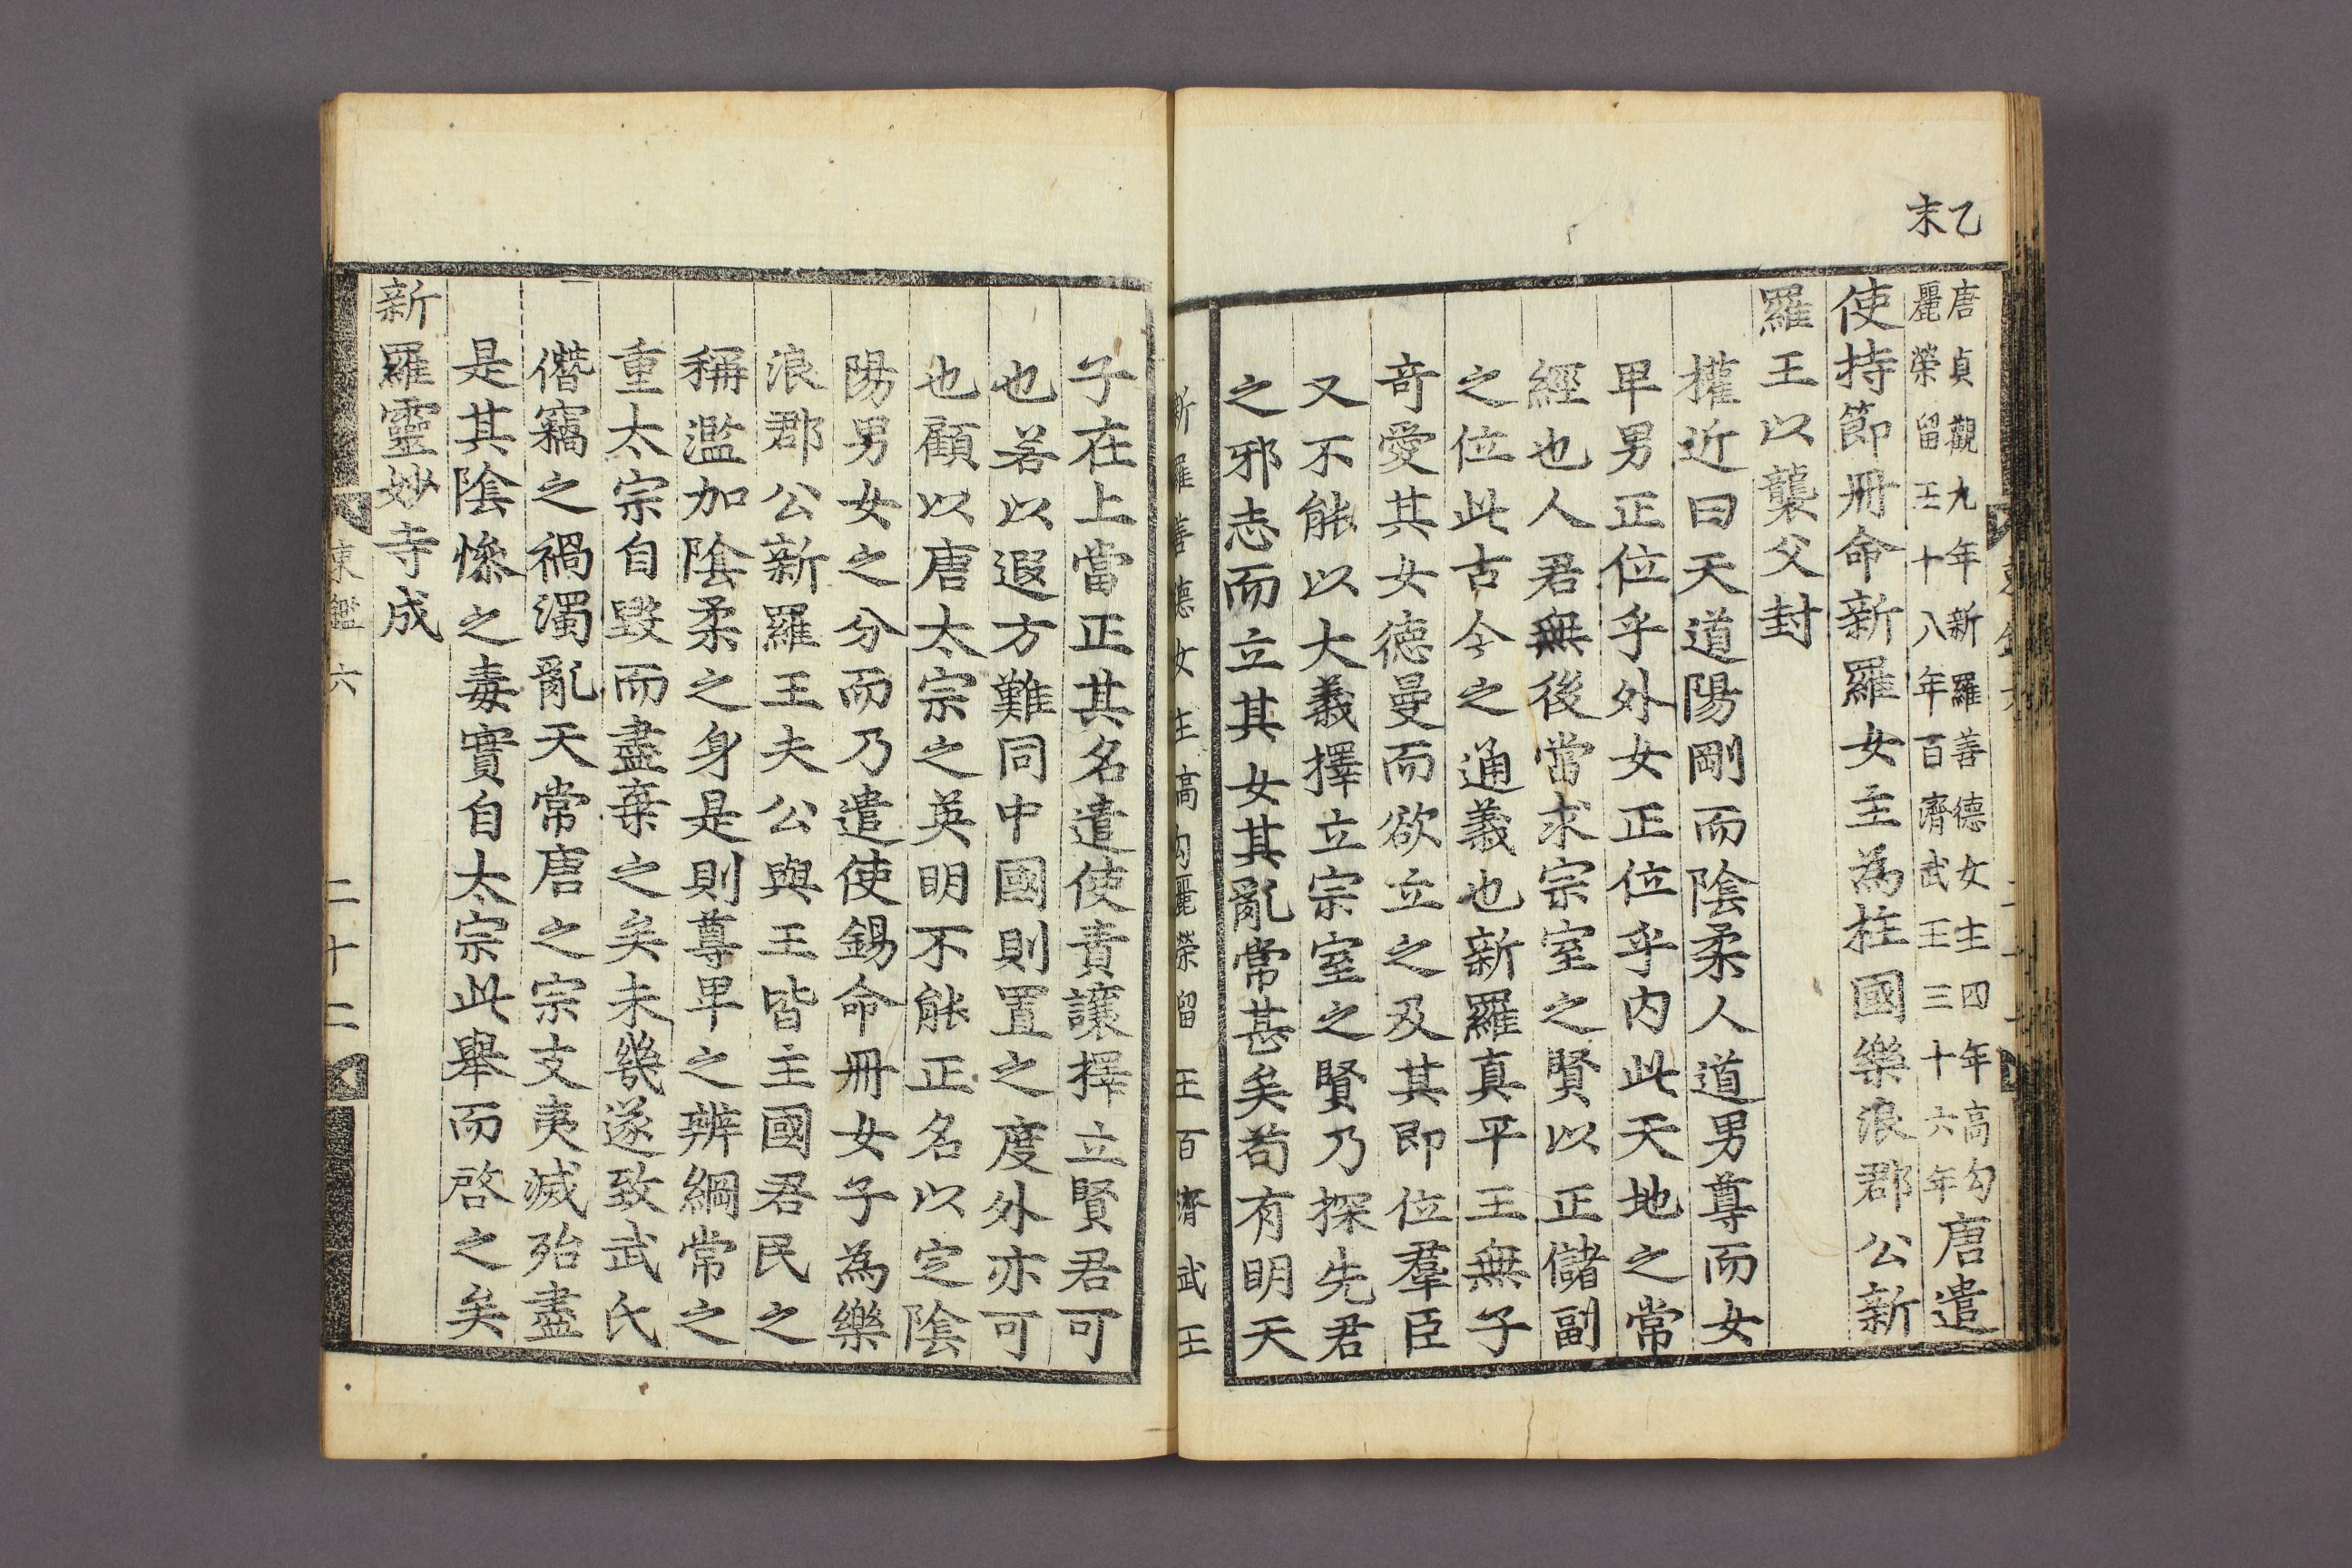 乙未
唐貞觀九年新羅善德女主四年高勾
麗榮留王十八年百濟武王三十六年
唐遣
使持節冊命新羅女主為柱國樂浪郡公新
羅王以襲父封
權近曰天道陽剛而陰柔人道男尊而女
卑男正位乎外女正位乎内此天地之常
經也人君無後當求宗室之賢以正儲副
之位此古今之通義也新羅真平王無子
奇愛其女德曼而欲立之及其即位羣臣
又不能以大義擇立宗室之賢乃探先君
之邪志而立其女其亂常甚矣苟有明天
新羅善德女主高勾麗榮留王百濟武王
子在上當正其名遣使責讓擇立賢君可
也若以遐方難同中國則置之度外亦可
也顧以唐太宗之英明不能正名以定陰
陽男女之分而乃遣使錫命冊女子為樂
浪郡公新羅王夫公與王皆主國君民之
稱濫加陰柔之身是則尊卑之辨綱常之
重太宗自毀而盡棄之矣未幾遂致武氏
僭竊之禍濁亂天常唐之宗支夷滅殆盡
是其陰慘之毒實自太宗此舉而啓之矣
新羅靈妙寺成
東鑑六
二十二